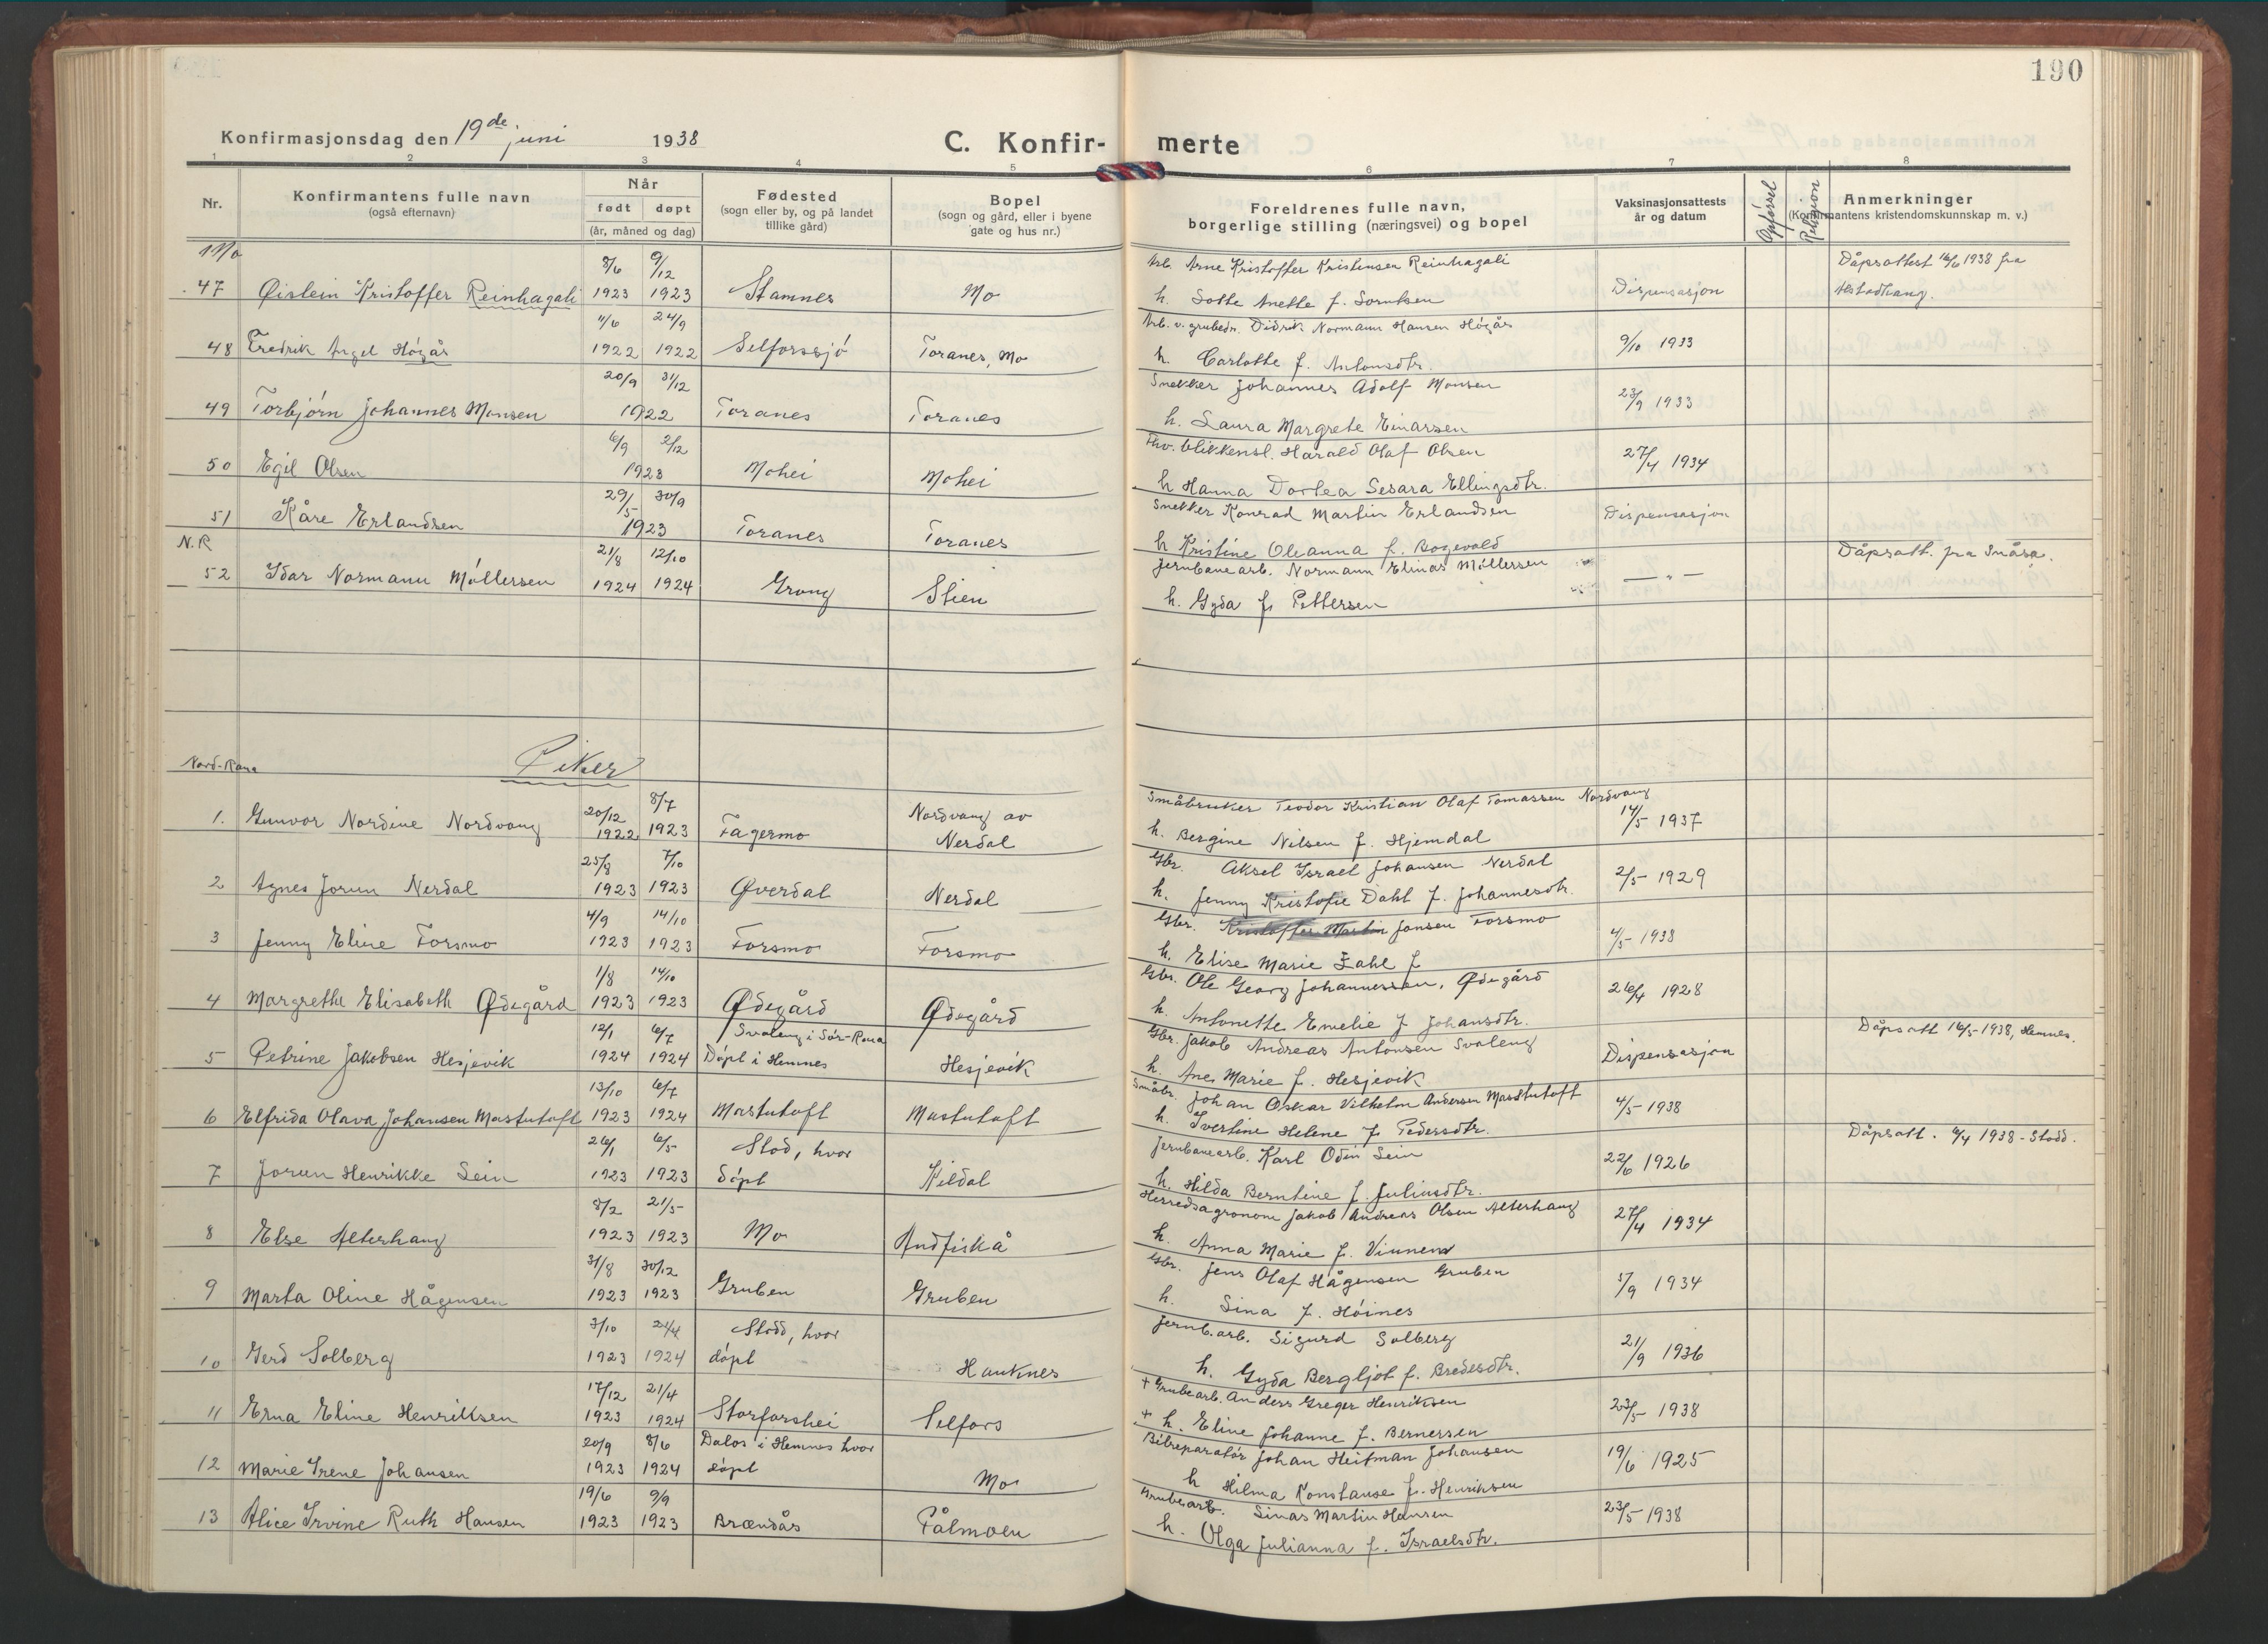 190
Konfirmasjonsdag den 19de juni 1938
C. Konfir- merte
1 2 3 4 5 6 7 8
Nr.
Konfirmantens fulle navn
(også efternavn)
Når
født døpt
(år, måned og dag)
Fødested
(sogn eller by, og på landet
tillike gård)
Bopel
(sogn og gård, eller i byene
gate og hus nr.)
Foreldrenes fulle navn,
borgerlige stilling (næringsvei) og bopel
Vaksinasjonsattests
år og datum
Opførsel
Religion
Anmerkninger
(Konfirmantens kristendomskunnskap m. v.)
Mo
8/6 9/12 Arb. Arne Kristoffer Kristensen Reinhagali Dåpsattest 16/6 1938 fra
47 Øistein Kristoffer Reinhagali 1923 1923 Stamnes Mo h. Lotte Anette f. Dispensasjon Alstadhaug.
11/6 24/9 Arb. v. grubedr. Didrik Normann Hansen Högås
48 Fredrik Angel Högås 1922 1922 Selforssjö Toranes, Mo h. Carlotte f. Antonsdtr. 9/10 1933
20/9 31/12 Snekker Johannes Adolf Monsen
49 Torbjörn Johannes Monsen 1922 Toranes Toranes h. Laura Margrete Einarsen 23/9 1933
6/9 2/12 Fhv. blikkensl. Harald Olaf Olsen
50 Egil Olsen 1923 Mohei Mohei h Hanna Dortea Sesara Ellingsdtr. 27/4 1934
29/5 30/9 Snekker Konrad Martin Erlandsen
51 Kåre Erlandsen 1923 Toranes Toranes h Kristine Oleanna f. Bogevold Dispensasjon
N.R
21/8 12/10 Jernbanearb. Normann Elinas Möllersen Dåpsatt. fra Snåsa.
52 Idar Normann Möllersen 1924 1924 Grong Stien h. Gyda f. Pettersen — " —
Nord-Rana Piker
20/12 8/7 Nordvang av Småbruker Teodor Kristian Olaf Tomassen Nordvang
1. Gunvor Nordine Nordvang 1922 1923 Fagermo Nerdal h. Bergine Nilsen f. Hjemdal 14/5 1937
25/8 7/10 Gbr. Aksel Israel Johansen Nerdal
2 Agnes Jorun Nerdal 1923 1923 Øverdal Nerdal h. Jenny Kristofie Dahl f. Johannesdtr. 2/5 1929
4/9 14/10 Gbr. Kristoffer Martin Jonsen Forsmo
3 Jenny Eline Forsmo 1923 1923 Forsmo Forsmo h. Elise Marie Zahl f 4/5 1938
1/8 14/10 Gbr. Ole Georg Johannessen, Ødegård
4 Margrethe Elisabeth Ødegård 1923 1923 Ødegård Ødegård h. Antonette Emelie f Johansdtr. 26/4 1928
12/1 6/7 Svaleng i Sör-Rana Gbr. Jakob Andreas Antonsen Svaleng Dåpsatt 16/5 1938, Hemnes.
5 Petrine Jakobsen Hesjevik 1924 1924 Döpt i Hemnes Hesjevik h. Ane Marie f. Hesjevik Dispensasjon
13/10 6/7 Småbr. Johan Oskar Vilhelm Andersen Mastutoft
6 Elfrida Olava Johansen Mastutoft 1923 1924 Mastutoft Mastutoft h. Ivertine Helene f. Pedersdtr. 4/5 1938
26/1 6/5 Stod, hvor Jernbanearb. Karl Odin Sein Dåpsatt. 6/4 1938 - Stodd.
7 Jorun Henrikke Sein 1923 1923 döpt Kildal h. Hilda Berntine f. Juliusdtr. 22/6 1926
8/2 21/5 Herredsagronom Jakob Andreas Olsen Alterhaug
8 Else Alterhaug 1923 1923 Mo Andfiskå h. Anna Marie f. Vinnend 27/4 1934
31/8 30/12 Gbr. Jens Olaf Hågensen Gruben
9 Marta Oline Hågensen 1923 1923 Gruben Gruben h. Sina f. Höines 5/9 1934
3/10 21/4 Stodd, hvor Jernb.arb. Sigurd Solberg
10 Gerd Solberg 1923 1924 döpt Hauknes h. Gyda Bergljot f. Bredesdtr. 21/9 1936
17/12 21/4 + Grubearb. Anders Greger Henriksen
11 Erna Eline Henriksen 1923 1924 Storforshei Selfors + h. Eline Johanne f. Bernersen 23/5 1938
20/9 8/6 Dalos i Hemnes hvor Bilreparatör Johan Heitman Johansen
12 Marie Irene Johansen 1923 1924 döpt Mo h Hilma Konstanse f. Henriksen 19/6 1925
19/6 9/9 Grubearb. Sinas Martin Hansen
13 Alice Irvine Ruth Hansen 1923 1923 Brændås Pålmoen h. Olga Julianna f. Israelsdtr. 23/5 1938